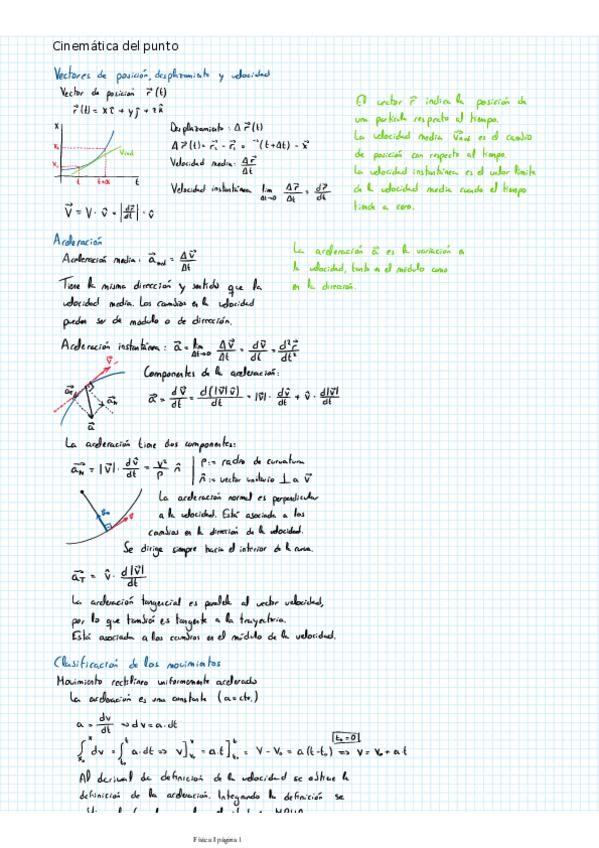 Cinemática del punto
Vectores de posición, desplazamiento y velocidad
Vector de posición r⃗(t)
r⃗(t) = xî + yĵ + zk̂
X
t
t+Δt
t
Desplazamiento: Δr⃗(t)
Velocidad media: Δr⃗/Δt
Velocidad instantánea lim Δt→0 Δr⃗/Δt = dr⃗/dt
V⃗ = V · v̂ = |dr⃗/dt| · v̂
El vector r⃗ indica la posición de
una partícula respecto al tiempo.
La velocidad media es el cambio
de posición con respecto al tiempo.
La velocidad instantánea es el valor límite
de la velocidad media cuando el tiempo
tiende a cero.
Aceleración
Aceleración media: a⃗med = Δv⃗/Δt
Tiene la misma dirección y sentido que la
velocidad media. Los cambios en la velocidad
pueden ser de módulo o de dirección.
La aceleración a⃗ es la variación en
la velocidad, tanto en el módulo como
en la dirección.
Aceleración instantánea: a⃗ = lim Δt→0 Δv⃗/Δt = dv⃗/dt = d²r⃗/dt²
Componentes de la aceleración:
a⃗ = dv⃗/dt = d(|v⃗|v̂)/dt = |v⃗| · dv̂/dt + v̂ · d|v⃗|/dt
v⃗
a⃗T
a⃗N
a⃗
La aceleración tiene dos componentes:
a⃗N = |v⃗| · dv̂/dt = v²/ρ n̂
ρ := radio de curvatura
n̂ := vector unitario ⊥ a v⃗
La aceleración normal es perpendicular
a la velocidad. Está asociada a los
cambios en la dirección de la velocidad.
Se dirige siempre hacia el interior de la curva.
a⃗T = v̂ · d|v⃗|/dt
La aceleración tangencial es paralela al vector velocidad,
por lo que también es tangente a la trayectoria.
Está asociada a los cambios en el módulo de la velocidad.
Clasificación de los movimientos
Movimiento rectilíneo uniformemente acelerado
La aceleración es una constante (a = cte.)
a = dv/dt → dv = a · dt
t₀ = 0
∫ dv = ∫ a · dt ⇒ v] = a · t] = V - V₀ = a (t - t₀) ⇒ V = V₀ + a t
Al derivar de definición de la velocidad se obtiene la
definición de la aceleración. Integrando la definición se
Física I página 1